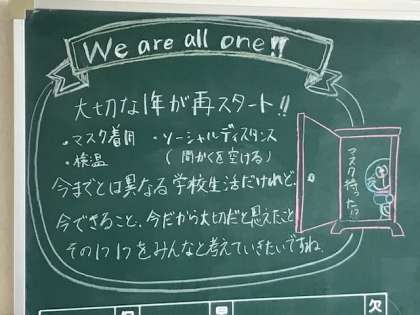 We are all one!!
大切な1年が再スタート!!
・マスク着用 ・ソーシャルディスタンス
・検温 (間かくを空ける)
マスク持った!?
今までとは異なる学校生活だけれど、
今できること、今だから大切だと思えたこと
その1つ1つをみんなと考えていきたいですね。
欠